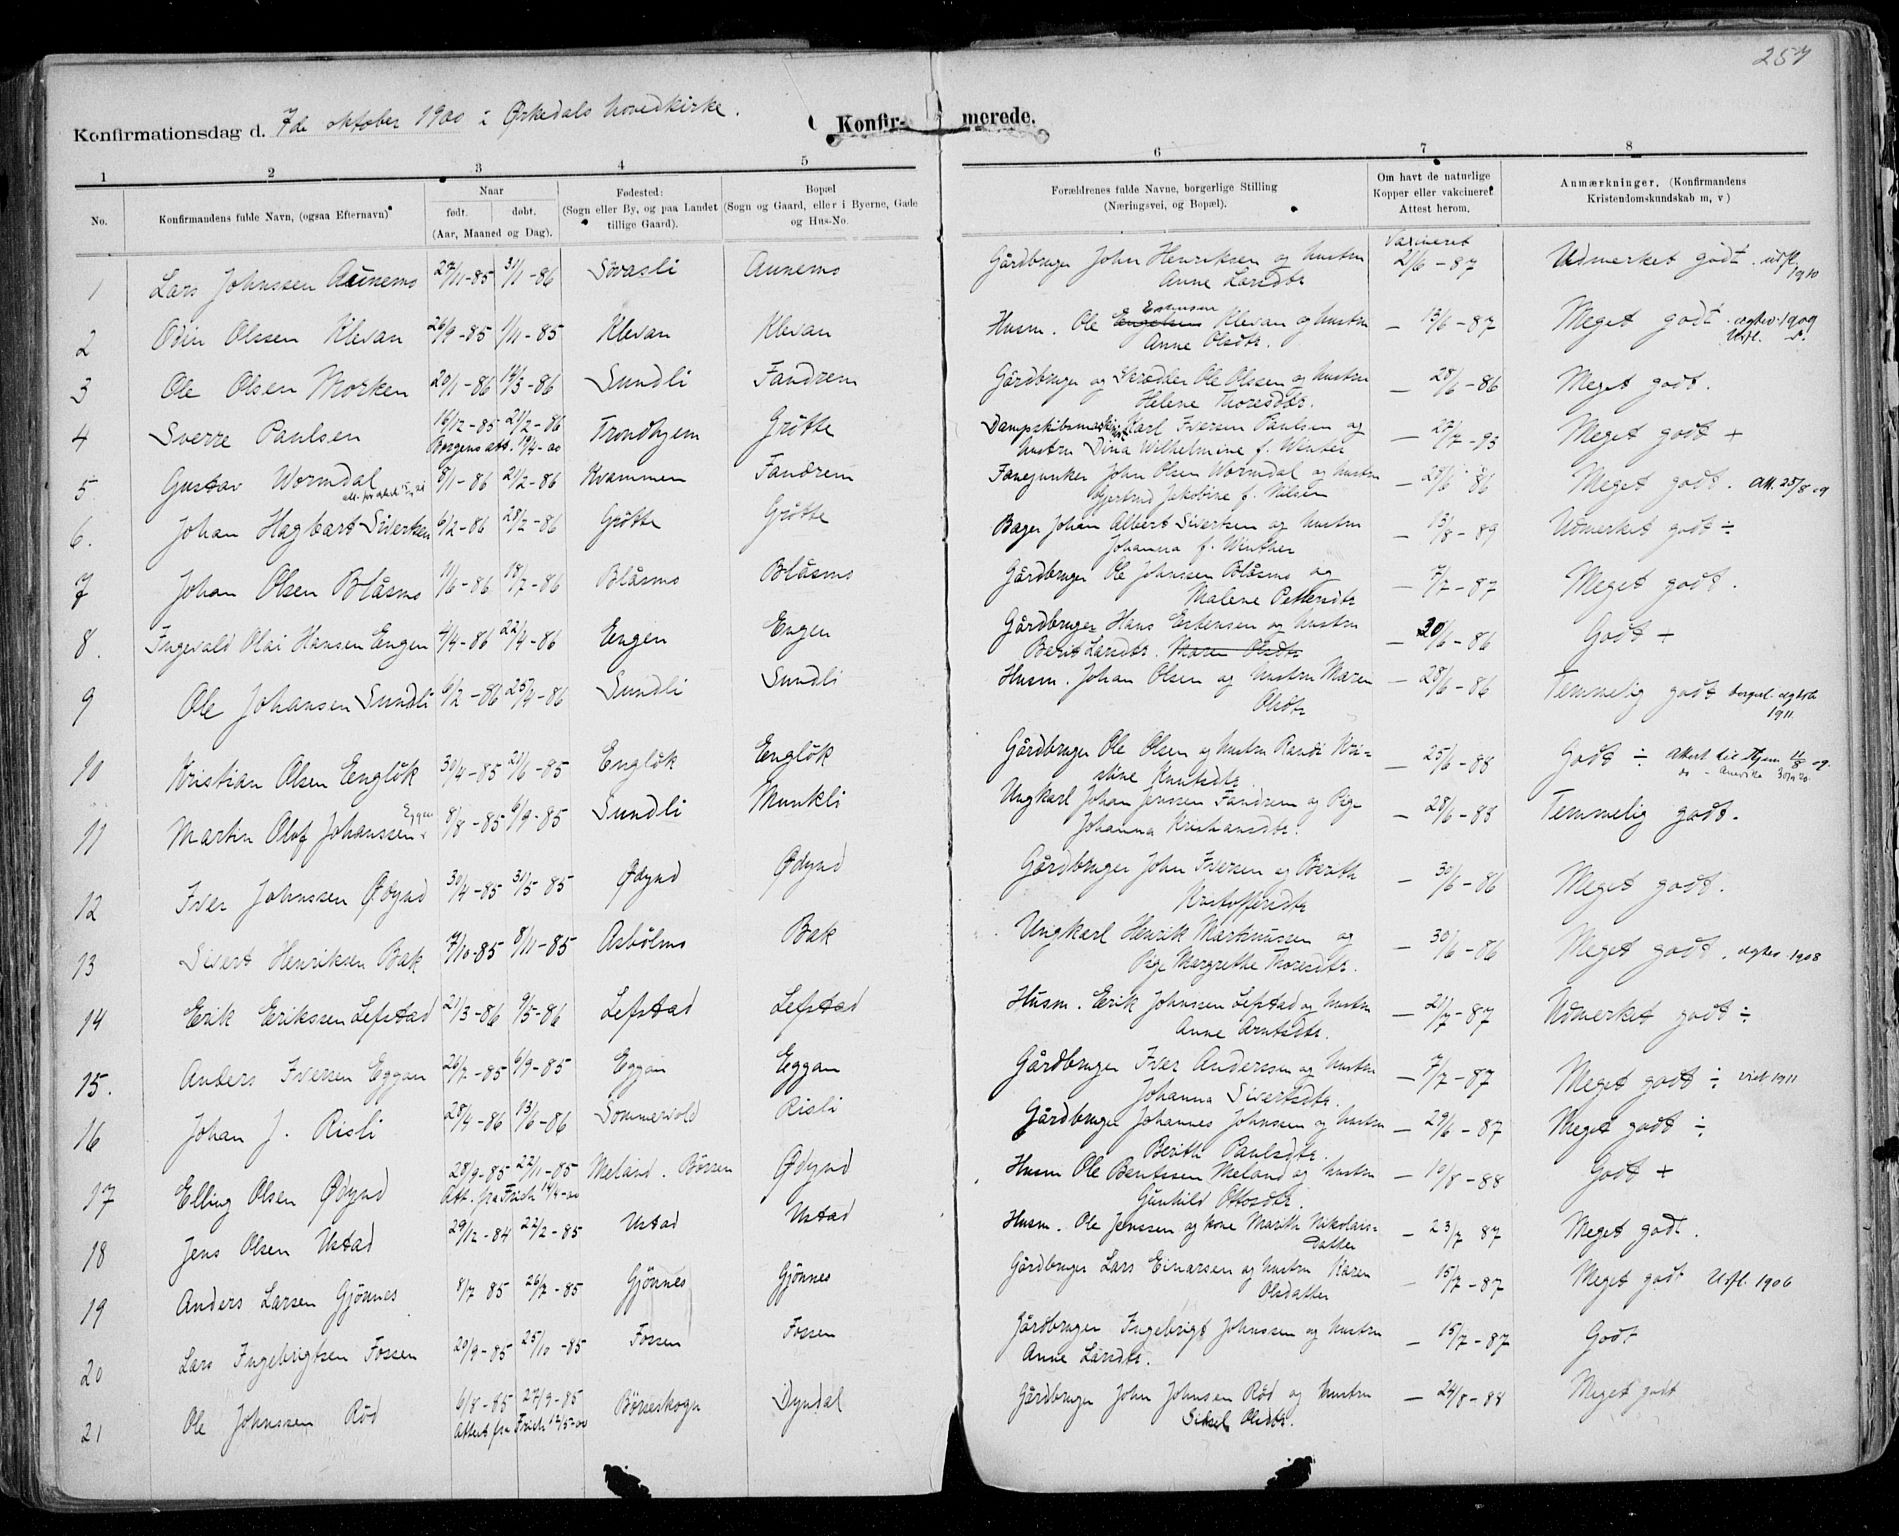 257
Konfirmationsdag d. 7de oktober 1900 i Ørkedals hovedkirke.
Konfir- merede.
1 2 3 4 5 6 7 8
No. Konfirmandens fulde Navn, (ogsaa Efternavn) Naar født. døbt. (Aar, Maaned og Dag). Fødested: (Sogn eller By, og paa Landet tillige Gaard). Bopæl (Sogn og Gaard, eller i Byerne, Gade og Hus-No. Forældrenes fulde Navne, borgerlige Stilling (Næringsvei, og Bopæl). Om havt de naturlige Kopper eller vakcineret. Attest herom. Anmærkninger. (Konfirmandens Kristendomskundskab m, v)
1 Lars Johnssen Aunemo 27/11-85 31/1-86 Sovasli Aunemo Gårdbruger John Henriksen og hustru Anne Larsdtr Vaxineret 21/6-87 Udmerket godt. udfl. 1910
2 Odin Olssen Klevan 26/9-85 1/11-85 Klevan Klevan Husm. Ole Estensen Klevan og hustru Anne Olsdtr. — 13/6-87 Meget godt.
3 Ole Olsen Morken 20/1-86 14/3-86 Sundli Fandrem Gårdbruger og Skrædder Ole Olssen og hustru Helene Thoresdtr. — 28/6-86 Meget godt.
4 Sverre Paulsen 16/12-85 21/2-86 Borgens att. 19/4-00 Trondhjem Grötte Dampskibsmaskinist Karl Iversen Paulsen og hustru Dina Wilhelmine f. Winter — 27/7-93 Meget godt +
5 Gustav Wormdal 8/1-86 21/2-86 Kvammen Fandrem Fanejunker John Olsen Wormdal og hustru Gjertrud Jakobine f. Nilsen — 28/6-86 Meget godt. Att. 25/8 09
6. Johan Hagbart Sivertsen 6/2-86 28/2-86 Grötte Grötte Bager Johan Albert Sivertsen og hustru Johanna f. Winther — 13/8-89 Udmerket godt ÷
7 Johan Olsen Blåsmo 11/6-86 18/7-86 Blåsmo Blåsmo Gårdbruger Ole Johnssen Blåsmo og Malene Pettersdtr — 7/7-87 Meget godt.
8. Ingevald Olai Hansen Engen 4/4-86 22/4-86 Engen Engen Gårdbruger Hans Estensen og hustru Berit Larsdtr. Maren Olsdtr — 30/6-86 Godt +
9 Ole Johansen Sundli 6/2-86 25/4-86 Sundli Sundli Husm. Johan Olsen og hustru Maren Olsdtr — 28/6-86 Temmelig godt borgerl. ægtesk. 1911
10 Kristian Olsen Englök 30/4-85 21/6-85 Englök Englök Gårdbruger Ole Olsen og hustru Randi Kristine Knutsdtr. — 25/6-88 Godt ÷ Attest til Hjem
11 Martin Olof Johanssen Eggen 8/8-85 6/9-85 Sundli Munkli Ungkarl Johan Jenssen Fandrem og Pige Johanna Kristiansdtr. — 28/6-88 Temmelig godt.
12 Iver Johnssen Ødynd 30/4-85 31/5-85 Ødynd Ødynd Gårdbruger John Iversen og Berith Kristoffersdtr — 30/6-86 Meget godt.
13 Sivert Henriksen Bak 4/10-85 8/11-85 Asbölmo Bak Ungkarl Henrik Markussen og Pige Margrethe Thoresdtr. — 30/6-86 Meget godt. ægtev. 1908
14 Erik Erikssen Lefstad 21/3-86 9/5-86 Lefstad Lefstad Husm. Erik Johnssen Lefstad og hustru Anne Arntsdtr. — 21/7-87 Udmerket godt ÷
15. Anders Iversen Eggan 26/7-85 6/9-85 Eggan Eggan Gårdbruger Iver Anderssen og hustru Johanna Sivertsdtr. — 7/7-87 Meget godt ÷ viet 1911
16 Johan J. Risli 28/4-86 13/6-86 Sommervold Risli Gårdbruger Johannes Johnssen og hustru Berith Paulsdtr. — 29/6-87 Meget godt ÷
17 Elling Olsen Ødynd 28/9-85 22/11-85 Att. fra Frich 14/4-00 Meland. Börsen Ødynd Husm Ole Berntssen Meland og hustru Gunhild Ottosdtr. — 10/8-88 Godt +
18 Jens Olsen Ustad 29/12-84 22/2-85 Ustad Ustad Husm. Ole Jenssen og kone Marith Nikolaisdatter — 23/7 87 Meget godt.
19 Anders Larsen Gjönnes 8/7 85 26/7-85 Gjönnes Gjönnes Gårdbruger Lars Einarsen og hustru Karen Olsdatter — 15/7-87 Meget godt Udfl. 1906
20 Lars Ingebrigtsen Fossen 20/9-85 25/10-85 Fossen Fossen Gårdbruger Ingebrigt Johnssen og hustru Anne Larsdtr. — 15/7-87 Godt
21 Ole Johnssen Röd 6/8-85 27/9-85 Attest fra Frich 12/5-00 Börseskogn Dyndal Gårdbruger John Johnsen Röd og hustru Sitsel Olsdtr. — 24/8-88 Meget godt